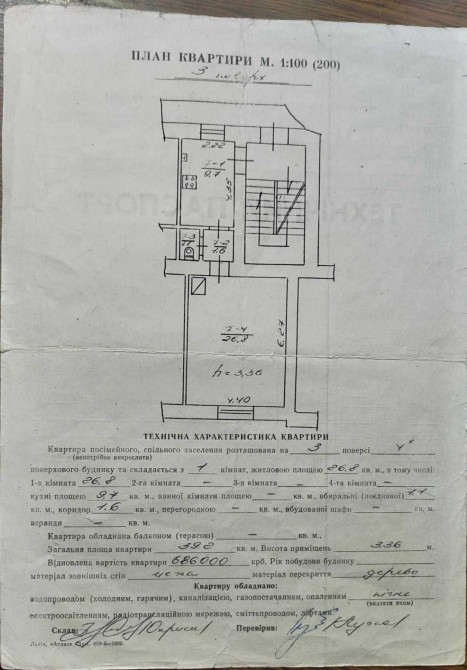 ПЛАН КВАРТИРИ М. 1:100 (200)
3 поверх
2,22
7-1
9,7
4,35
7-3
1.1
7-2
1.6
7-4
26,8
6,27
h = 3,36
4,40
ТЕХНІЧНА ХАРАКТЕРИСТИКА КВАРТИРИ
Квартира посімейного, спільного заселення розташована на 3 поверсі 4х
(непотрібне викреслити)
поверхового будинку та складається з 1 кімнат, житловою площею 26.8 кв. м, в тому числі:
1-а кімната 26.8 2-га кімната — 3-я кімната — 4-та кімната —
кухні площею 9.7 кв. м., ванної кімнати площею — кв. м., вбиральні (поєднаної) 1.1
кв. м., коридор 1.6 кв. м., перегородкою — кв. м., вбудованої шафи — кв. м.,
веранди — кв. м.
Квартира обладнана балконом (терасою) — кв. м.,
Загальна площа квартири 39,2 кв. м. Висота приміщень 336 м.
Відновлена вартість квартири 686000 крб. Рік побудови будинку
матеріал зовнішніх стін цегла матеріал перекриття дерево
Квартиру обладнано:
водопроводом (холодним, гарячим), каналізацією, газопостачанням, опаленням пічне
(вказати яким)
електроосвітленням, радіотрансляційною мережею, сміттєпроводом, ліфтами.
Склав: Перевірив:
Львів, «Атлас»